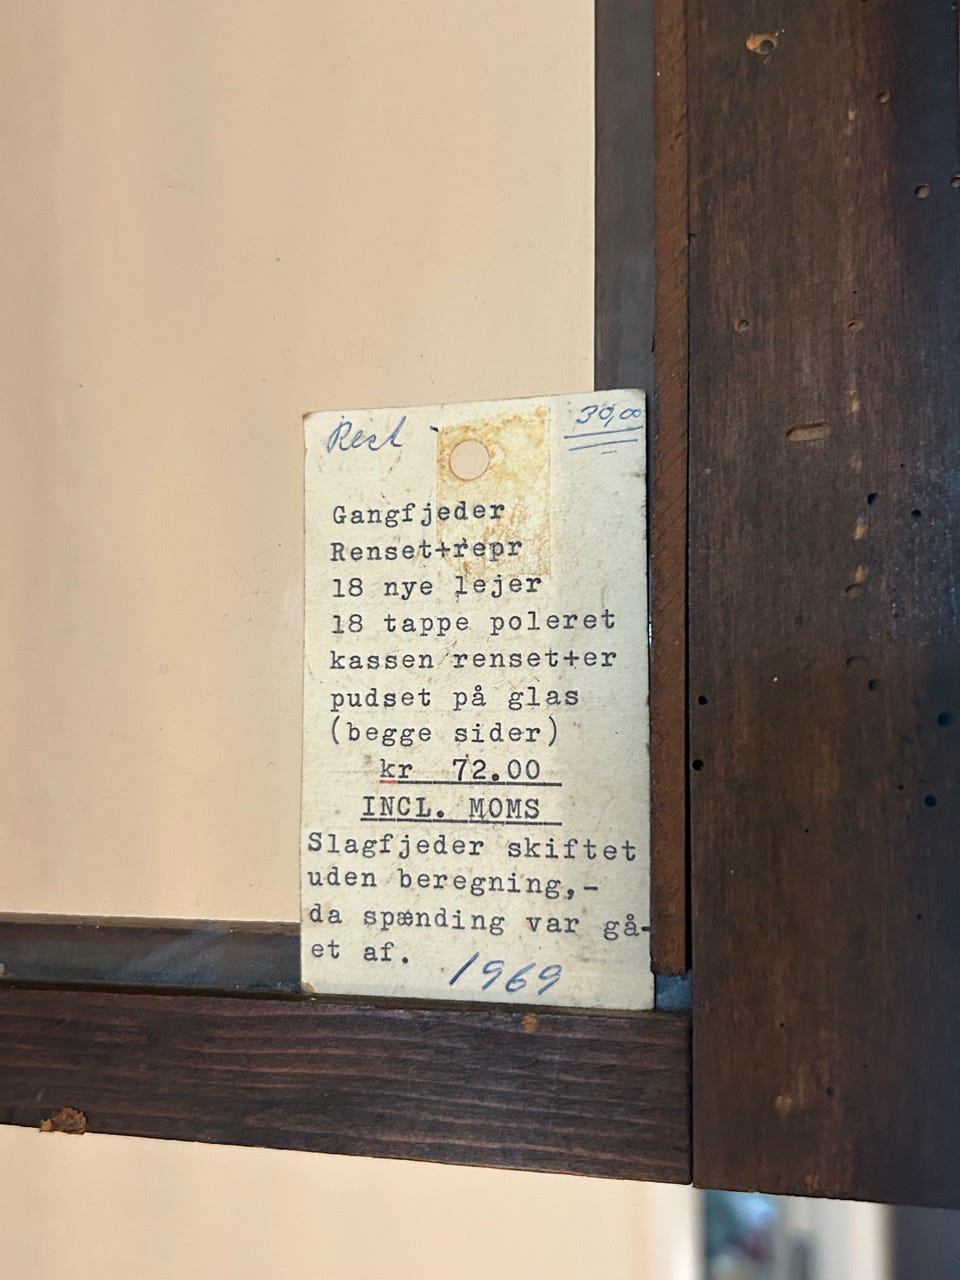 Rest 30,00
Gangfjeder
Renset+repr
18 nye lejer
18 tappe poleret
kassen renset+er
pudset på glas
(begge sider)
kr 72.00
INCL. MOMS
Slagfjeder skiftet
uden beregning,-
da spænding var gå-
et af.
1969